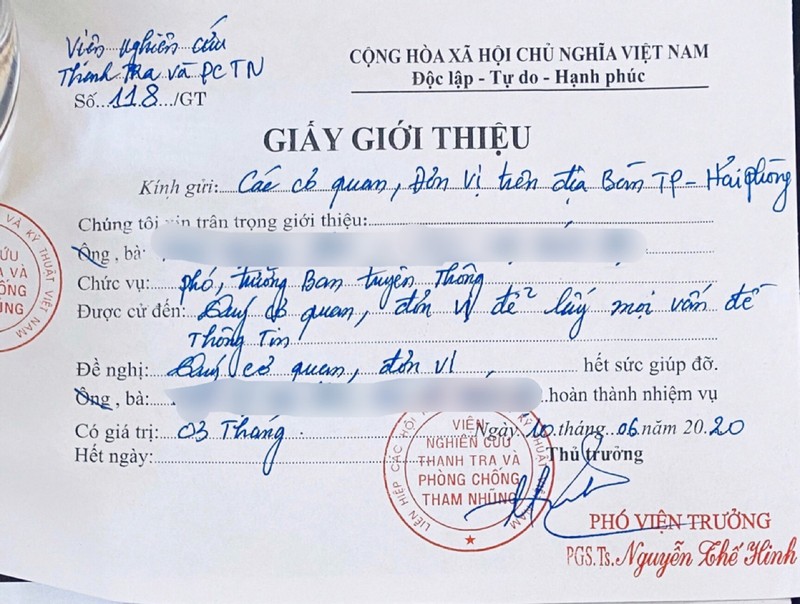 Viện nghiên cứu
Thanh tra và PCTN
Số...118.../GT
CỘNG HÒA XÃ HỘI CHỦ NGHĨA VIỆT NAM
Độc lập - Tự do - Hạnh phúc
GIẤY GIỚI THIỆU
Kính gửi: Các cơ quan, Đơn vị trên địa Bàn TP - Hải phòng
Chúng tôi xin trân trọng giới thiệu:
Ông, bà:
Chức vụ: phó, trưởng Ban truyền Thông
Được cử đến: Quý cơ quan, đơn vị để lấy mọi vấn đề
Thông Tin
Đề nghị: Quý cơ quan, đơn vị, hết sức giúp đỡ.
Ông, bà: hoàn thành nhiệm vụ
Có giá trị: 03 Tháng. Ngày 10 tháng 06 năm 2020
Hết ngày: Thủ trưởng
VIỆN
NGHIÊN CỨU
THANH TRA VÀ
PHÒNG CHỐNG
THAM NHŨNG
LIÊN HIỆP CÁC HỘI KỸ THUẬT VIỆT NAM
PHÓ VIỆN TRƯỞNG
PGS.Ts. Nguyễn Thế Hinh
VÀ KỸ THUẬT VIỆT NAM